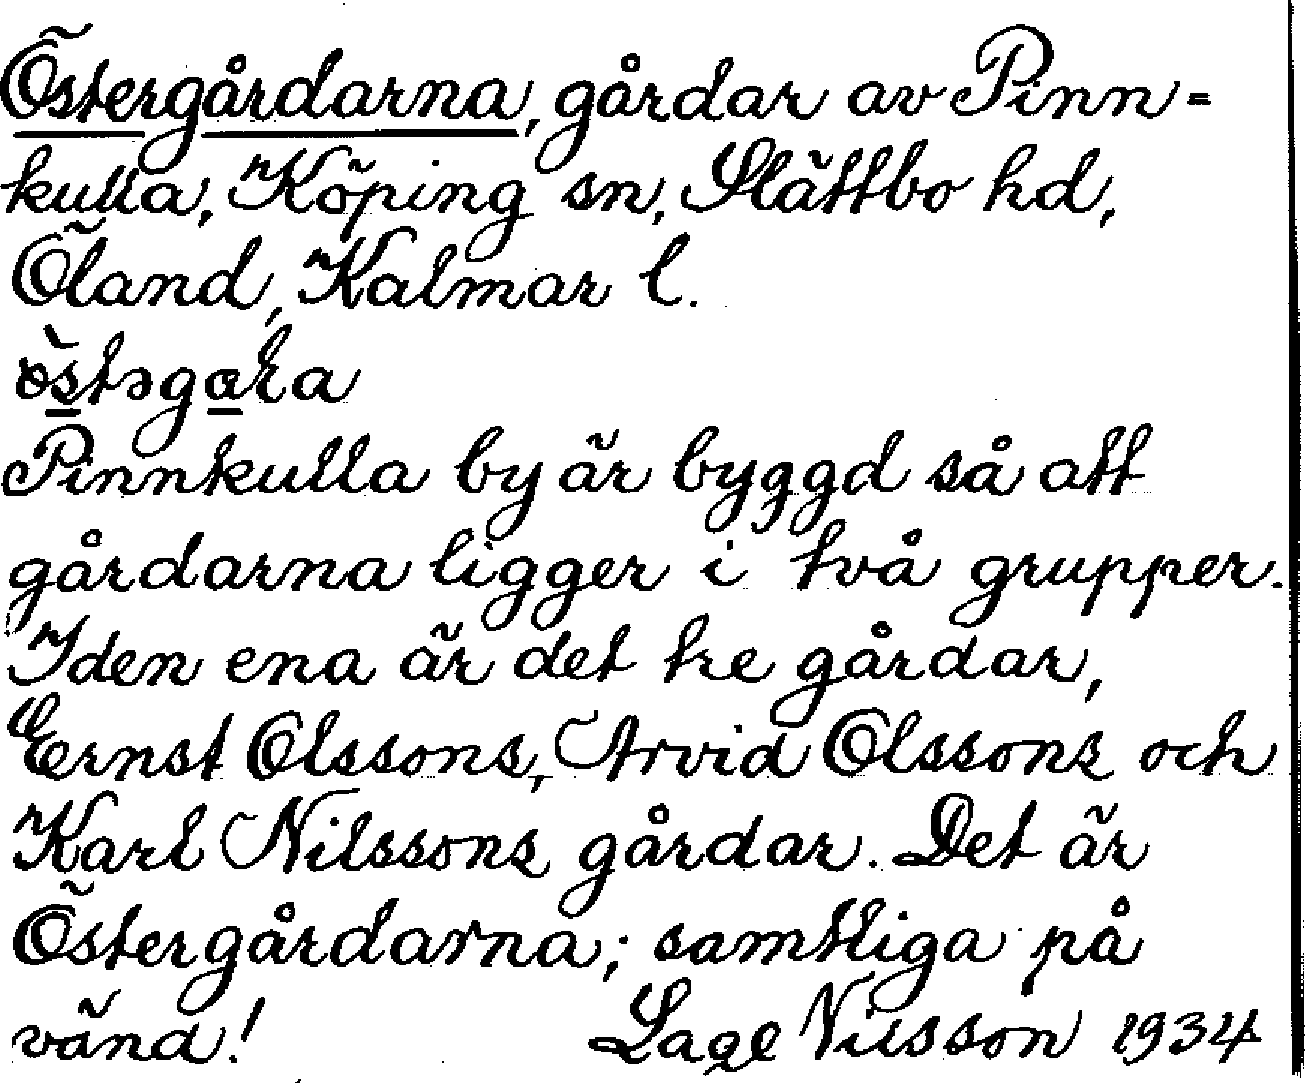 Östergårdarna, gårdar av Pinn=
kulla, Köping sn, Slättbo hd,
Öland, Kalmar l.
Pinnkulla by är byggd så att
gårdarna ligger i två grupper.
I den ena är det tre gårdar,
Ernst Olssons, Arvid Olssons och
Karl Nilssons gårdar. Det är
Östergårdarna; samtliga på
vänd! Lage Nilsson 1934